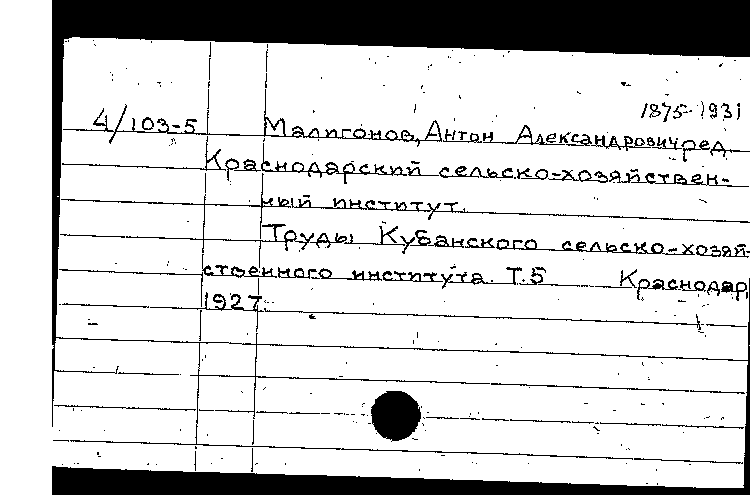 1875-1931
4/103-5 Малигонов, Антон Александрович ред.
Краснодарский сельско-хозяйствен-
ный институт.
Труды Кубанского сельско-хозяй-
ственного института. Т.5 Краснодар,
1927.